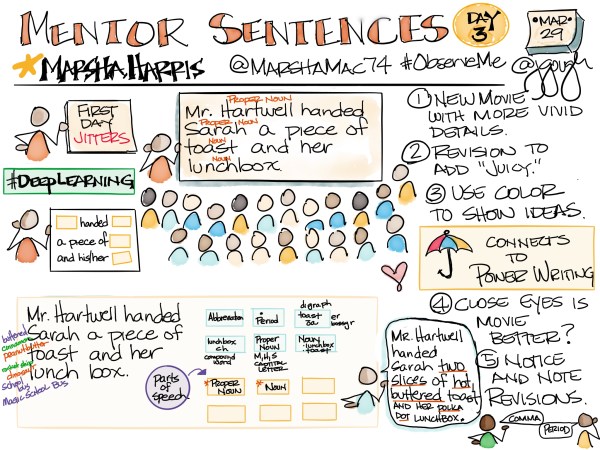 MENTOR SENTENCES
DAY 3
MAR. 29
*MARSHA HARRIS
@MARSHAMAC74 #OBSERVEME
FIRST DAY JITTERS
PROPER NOUN
Mr. Hartwell handed
PROPER NOUN
Sarah a piece of
NOUN
toast and her
NOUN
lunchbox.
#DEEPLEARNING
handed
a piece of
and his/her
① NEW MOVIE
WITH MORE VIVID
DETAILS.
② REVISION TO
ADD "JUICY."
③ USE COLOR
TO SHOW IDEAS.
CONNECTS
TO
POWER WRITING
④ CLOSE EYES IS
MOVIE
BETTER?
⑤ NOTICE
AND NOTE
REVISIONS.
COMMA
PERIOD
Mr. Hartwell handed
Sarah a piece of
toast and her
lunch box.
buttered
cinnamon
peanut butter
school
bus
MAGIC SCHOOL BUS
parts of speech
Abbreviation
Period
digraph
toast
er
lunchbox
ch
compound
word
Proper
NOUN
M, H, S
CAPITAL
LETTER
Noun
lunchbox
toast
*PROPER
NOUN
*NOUN
Mr. Hartwell
handed
Sarah two
slices of hot
buttered toast
AND HER POLKA
DOT LUNCHBOX.